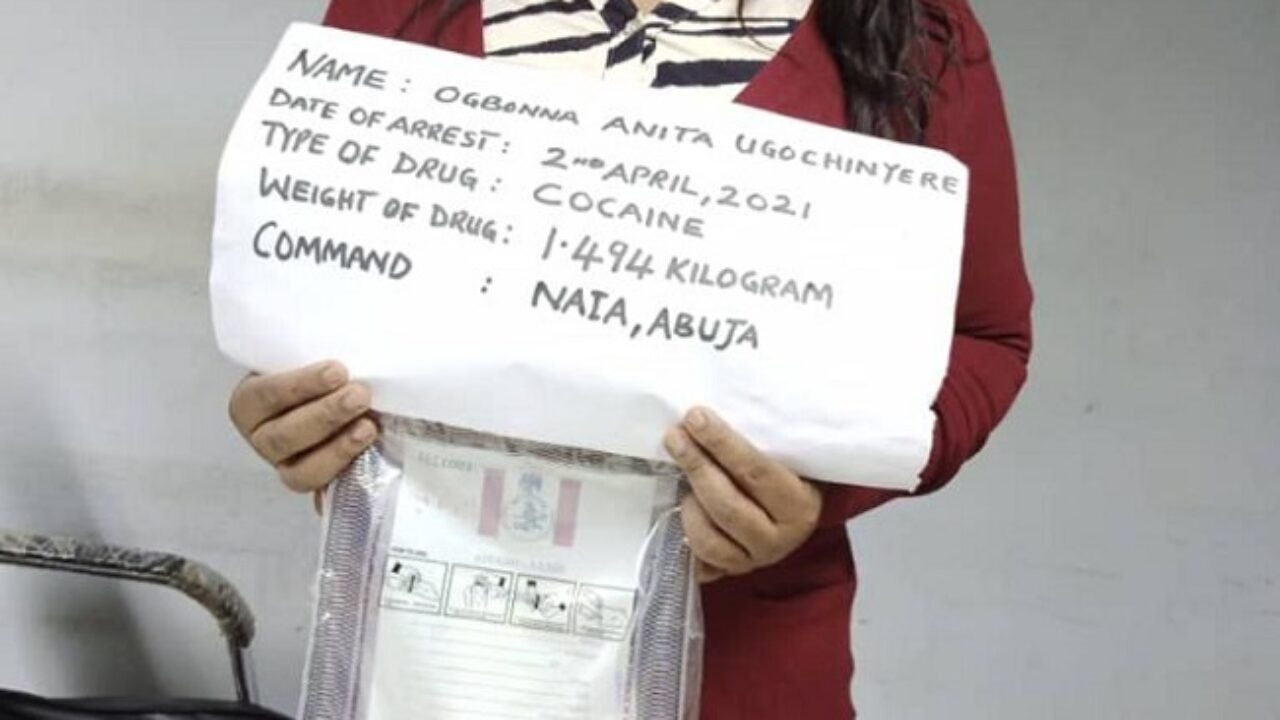 NAME : OGBONNA ANITA UGOCHINYERE
DATE OF ARREST : 2ND APRIL, 2021
TYPE OF DRUG : COCAINE
WEIGHT OF DRUG : 1.494 KILOGRAM
COMMAND : NAIA, ABUJA